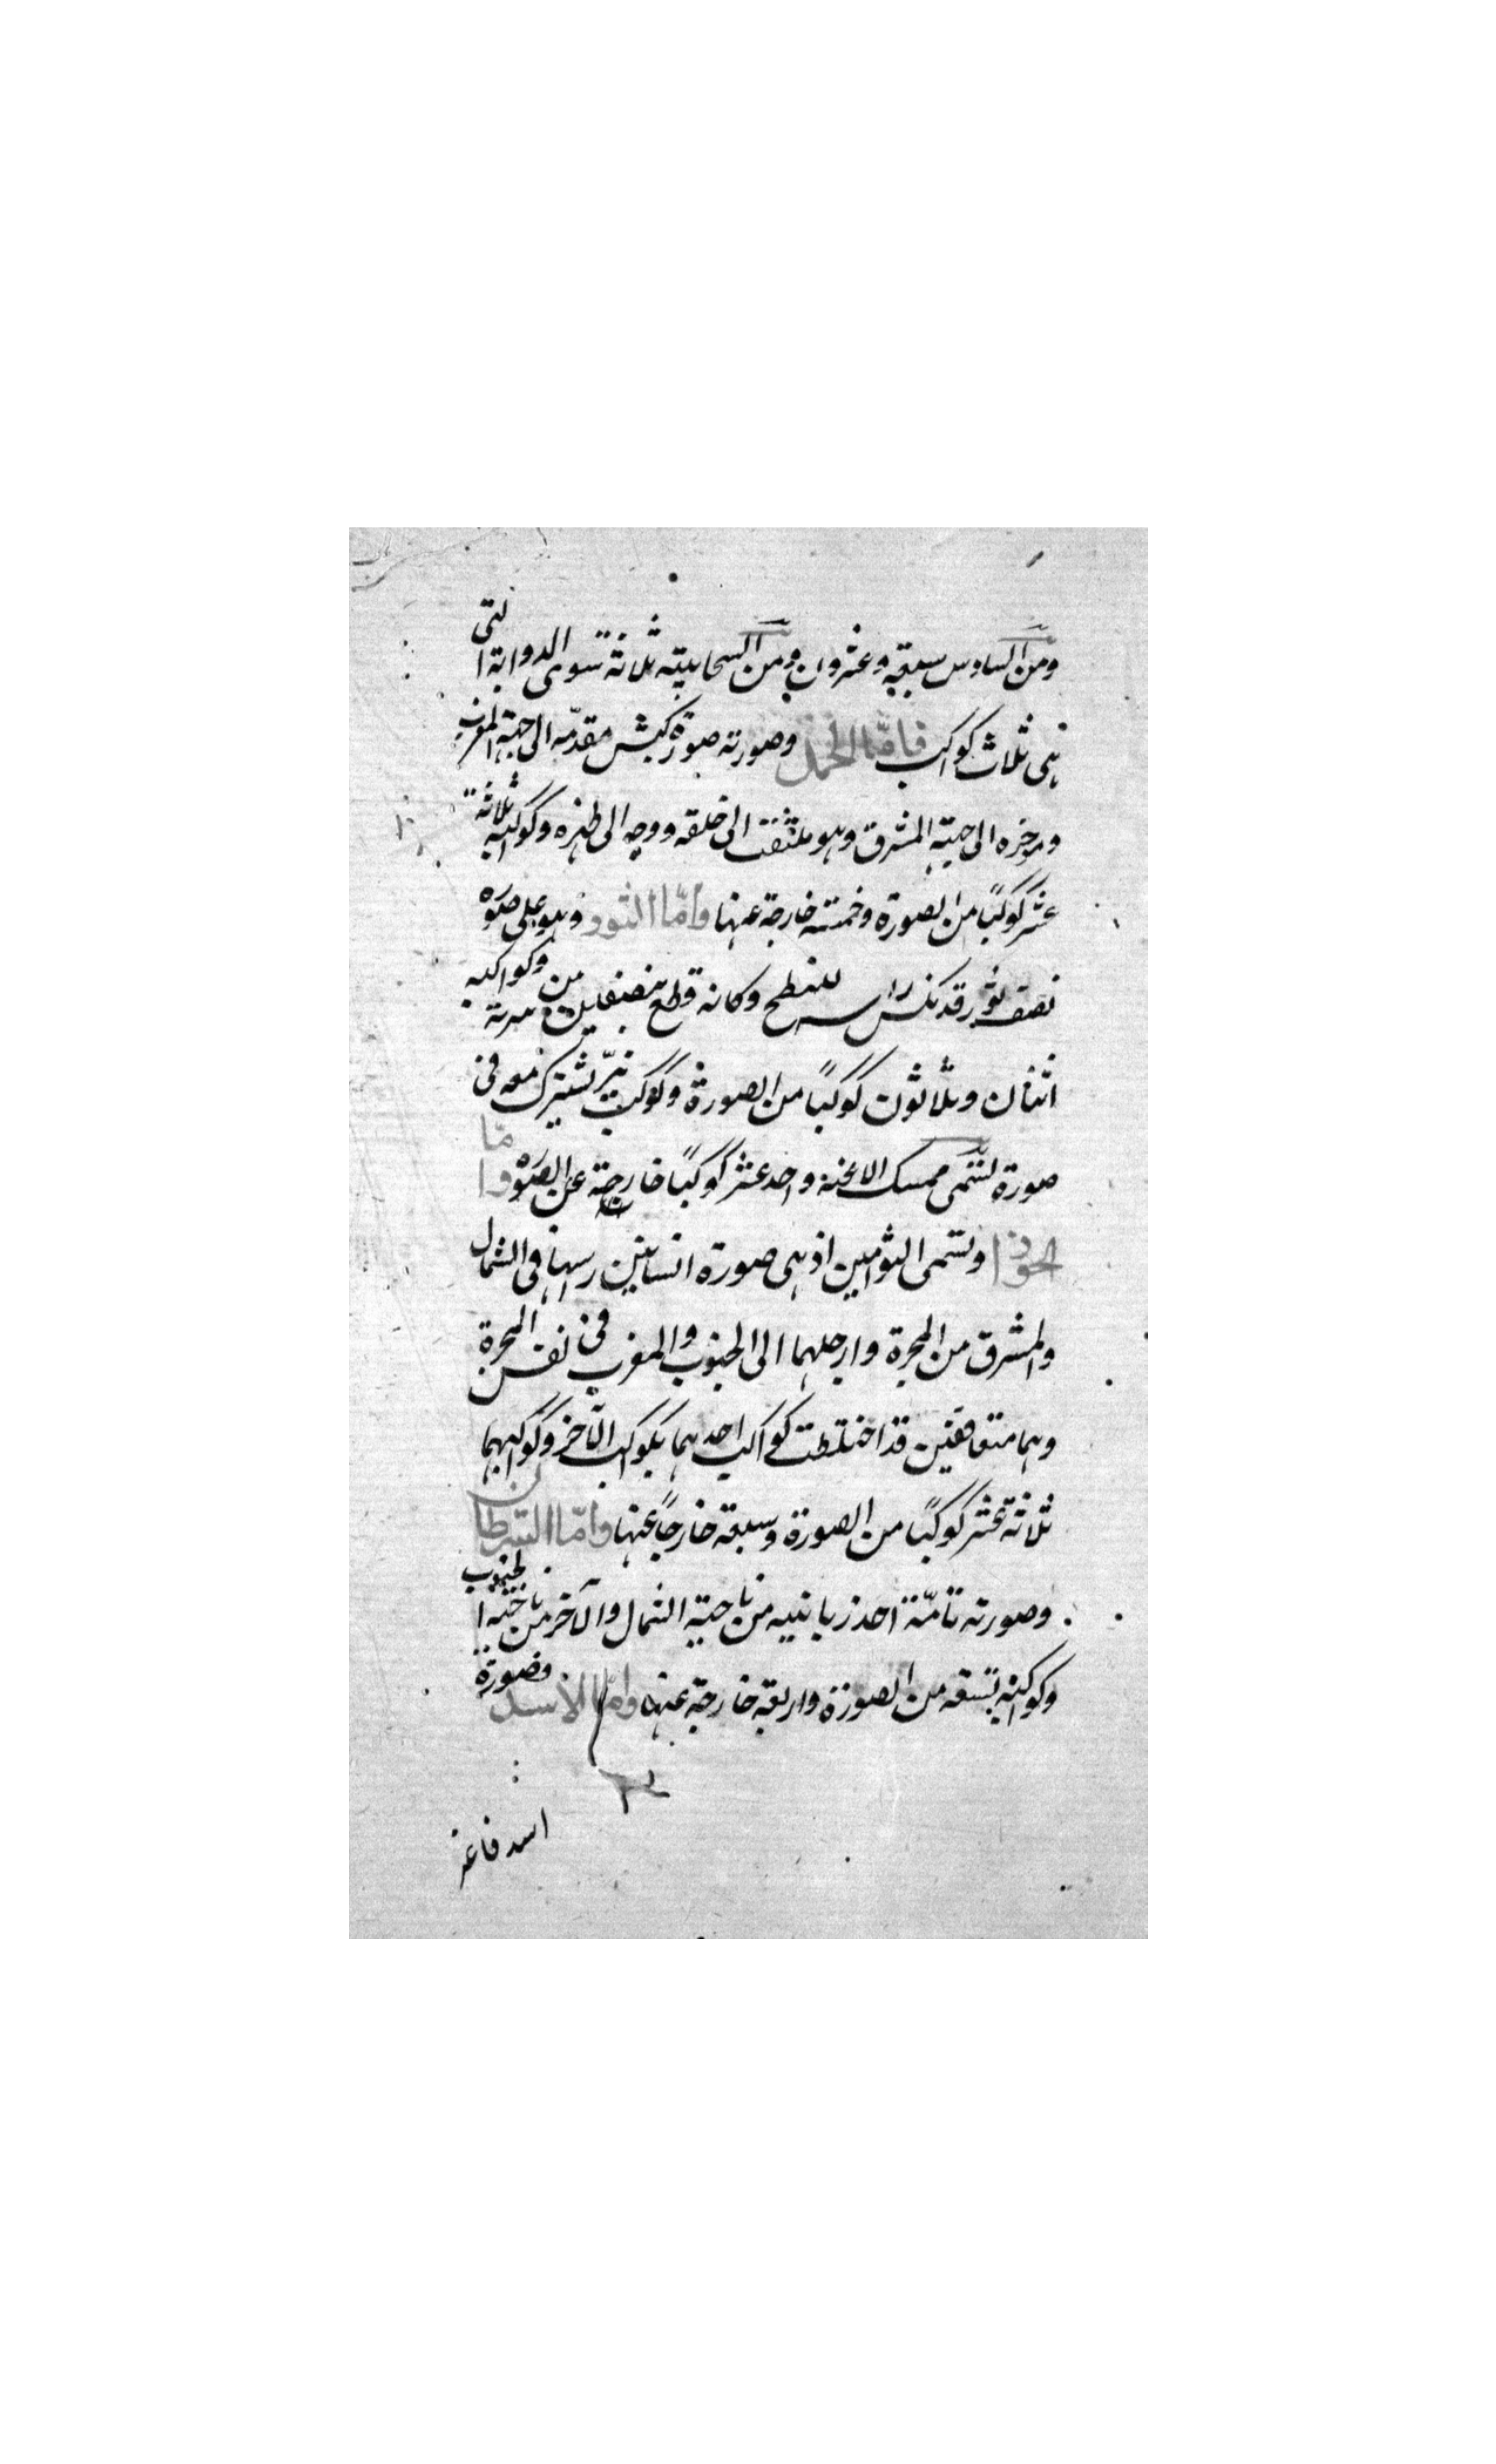 ومن السادس سبعة وعشرون ومن السحابية ثلاثة سوى الدوابة التي
هي ثلاث كواكب فامّا الحمل وصورته صورة كبش مقدّمه الى جهة المغرب
وموخره الى جهة المشرق وهو ملتفت الى خلفه ووجه الى ظهره وكواكبه ثلاثة
عشر كوكبًا من الصورة وخمسة خارجة عنها وامّا الثور وهو على صورة
نصف ثور قد نكس راسه للنطح وكانه قطع بنصفين من سرته وكواكبه
اثنان وثلاثون كوكبًا من الصورة وكوكب نيّر يشترك معه في
صورة تسمى ممسك الاعنة واحد عشر كوكبًا خارجة عن الصورة وامّا
الجوزا وتسمى التوامين اذ هي صورة انسانين راسهما في الشمال
والمشرق من المجرة وارجلهما الى الجنوب والمغرب في نفس المجرة
وهما متعانقين قد اختلطت كواكب احدهما بكواكب الآخر وكواكبهما
ثلاثة عشر كوكبًا من الصورة وسبعة خارجًا عنها وامّا السرطان
وصورته تامّة احد زبانييه من ناحية الشمال والآخر من ناحية الجنوب
وكواكبه تسعه من الصورة واربعة خارجة عنها وامّا الاسد وصورة
اسد فاغر